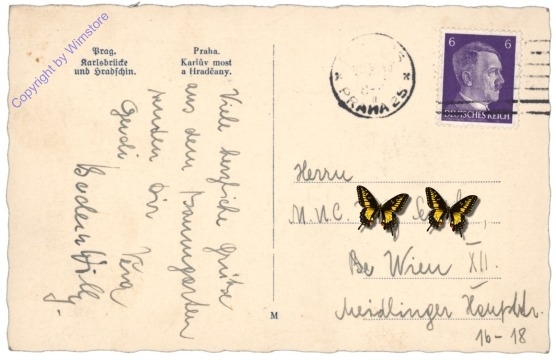 Copyright by Wimstore
Prag.
Karlsbrücke
und Hradschin.
Praha.
Karlův most
a Hradčany.
Viele herzliche Grüße
aus dem Baumgarten
senden Dir
Gerdi Vera
PRAHA 25
6 6
DEUTSCHES REICH
Herrn
M.U.C.
Be Wien XII.
Meidlinger Hauptstr.
16-18
M